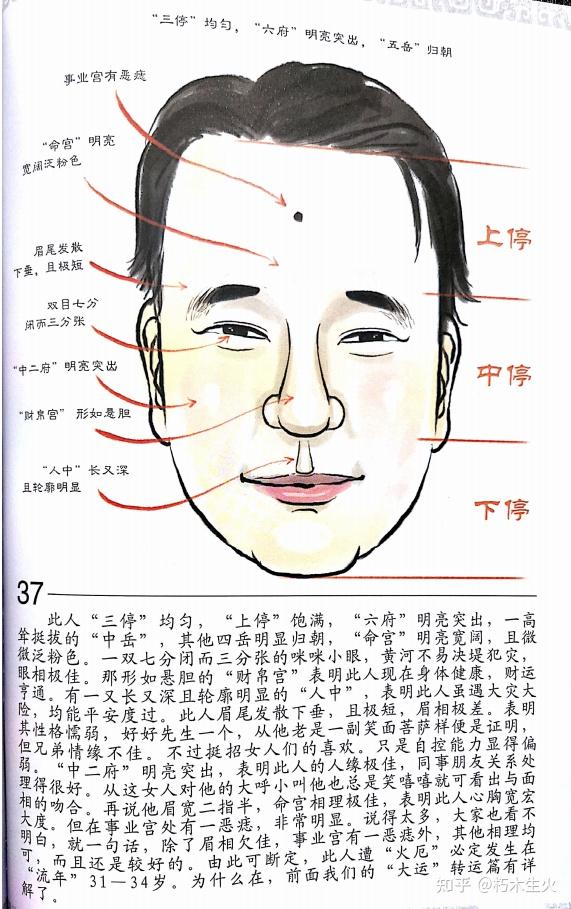 “三停”均匀，“六府”明亮突出，“五岳”归朝
事业宫有恶痣
“命宫”明亮
宽阔泛粉色
眉尾发散
下垂，且极短
双目七分
闭而三分张
“中二府”明亮突出
“财帛宫” 形如悬胆
“人中”长又深
且轮廓明显
上停
中停
下停
37
此人“三停”均匀，“上停”饱满，“六府”明亮突出，一高
耸挺拔的“中岳”，其他四岳明显归朝，“命宫”明亮宽阔，且微
微泛粉色。一双七分闭而三分张的咪咪小眼，黄河不易决堤犯灾，
眼相极佳。那形如悬胆的“财帛宫”表明此人现在身体健康，财运
亨通。有一又长又深且轮廓明显的“人中”，表明此人虽遇大灾大
险，均能平安度过。此人眉尾发散下垂，且极短，眉相极差。表明
其性格懦弱，好好先生一个，从他老是一副笑面菩萨样便是证明，
但兄弟情缘不佳。不过挺招女人们的喜欢。只是自控能力显得偏
弱。“中二府”明亮突出，表明此人的人缘极佳，同事朋友关系处
理得很好。从这女人对他的大呼小叫他也总是笑嘻嘻就可看出与面
相的吻合。再说他眉宽二指半，命宫相理极佳，表明此人心胸宽宏
大度。但在事业宫处有一恶痣，非常明显。说得太多，大家也看不
明白，就一句话，除了眉相欠佳，事业宫有一恶痣外，其他相理均
可，而且还是较好的。由此可断定，此人遭“火厄”必定发生在
“流年”31—34岁。为什么在，前面我们的“大运”转运篇有详
解了。
知乎 @朽木生火